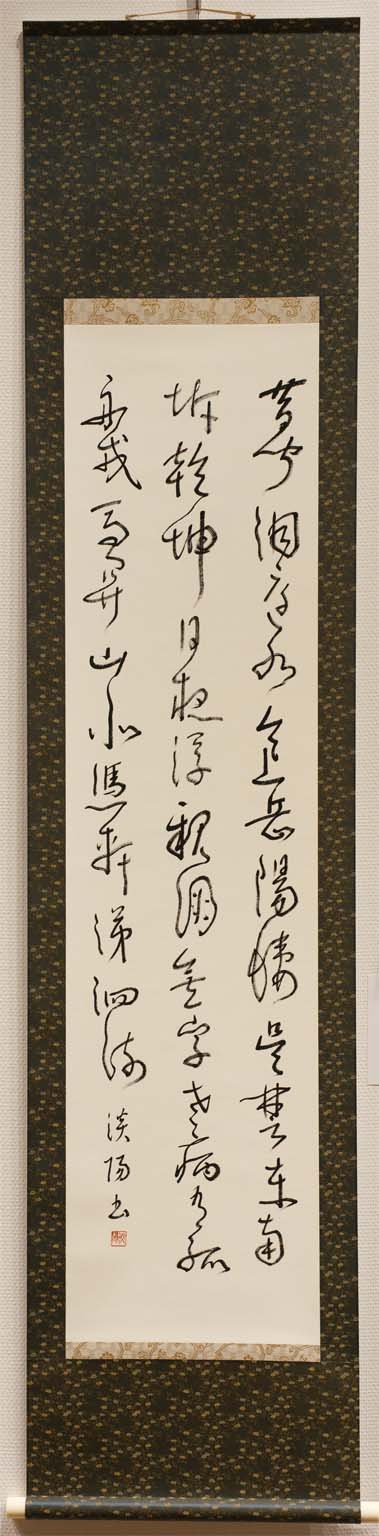 昔聞洞庭水今上岳陽樓吳楚東南
坼乾坤日夜浮親朋無字老病有孤
舟戎馬關山北憑軒涕泗流
淡陽書